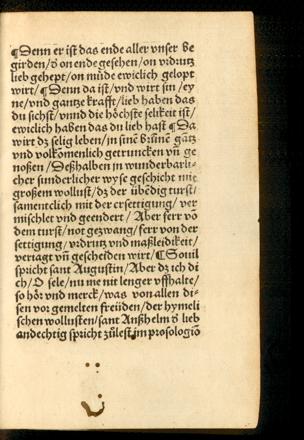 ¶Denn er ist das ende aller vnser be
girden/ď on ende gesehen/on vrdrutz
lieb gehept/on müde ewiclich gelopt
wirt/¶Denn da ist/vnd wirt sin/ey
ne/vnd gantze krafft/lieb haben das
du sichst/vnnd die höchste selikeit ist/
ewiclich haben das du lieb hast ¶Da
wirt dz selig leben/in sinē brūnē gātz
vnd volkōmenlich getruncken vn̄ ge
noßen/Deßhalben in wunderbarli-
cher sunderlicher wyse geschicht mit
großem wollust/dz der übēdig turst/
samentlich mit der ersettigung/ver
mischlet vnd geendert/Aber ferr vō
dem turst/not gezwang/ferr von der
settigung/vrdrutz vnd maßleidikeit/
veriagt vn̄ gescheiden wirt/¶Souil
spricht sant Augustin/Aber dz ich di
ch/O sele/nu me nit lenger vffhalte/
so hör vnd merck/was von allen di-
sen vor gemelten freüden/der hymeli
schen wollusten/sant Anßhelm ď lieb
andechtig spricht zůlest im prosologiō